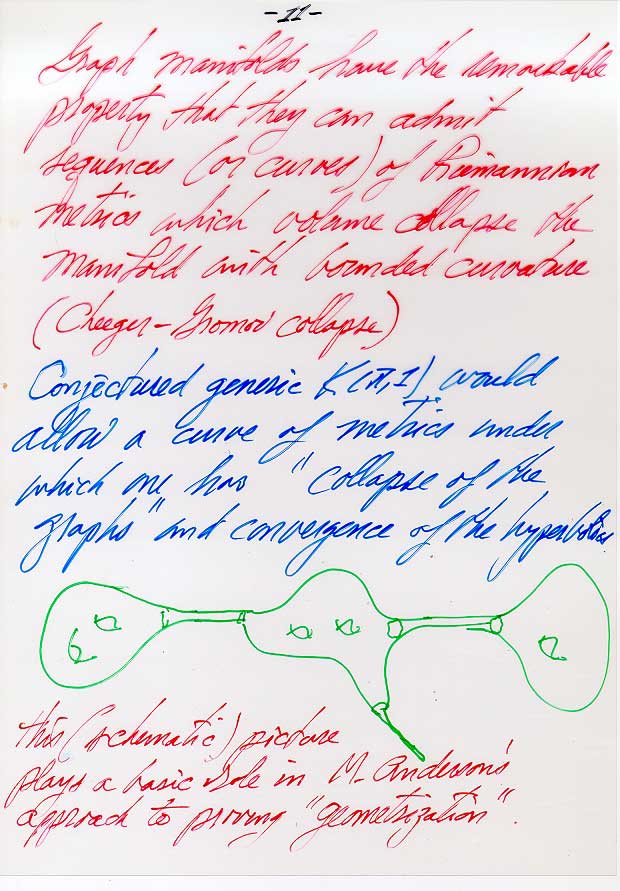 -11-
Graph manifolds have the remarkable
property that they can admit
sequences (or curves) of Riemannian
metrics which volume collapse the
manifold with bounded curvature
(Cheeger-Gromov collapse)
Conjectured generic K(π,1) would
allow a curve of metrics under
which one has "collapse of the
graphs" and convergence of the hyperbolics
this (schematic) picture
plays a basic role in M. Anderson's
approach to proving "geometrization".